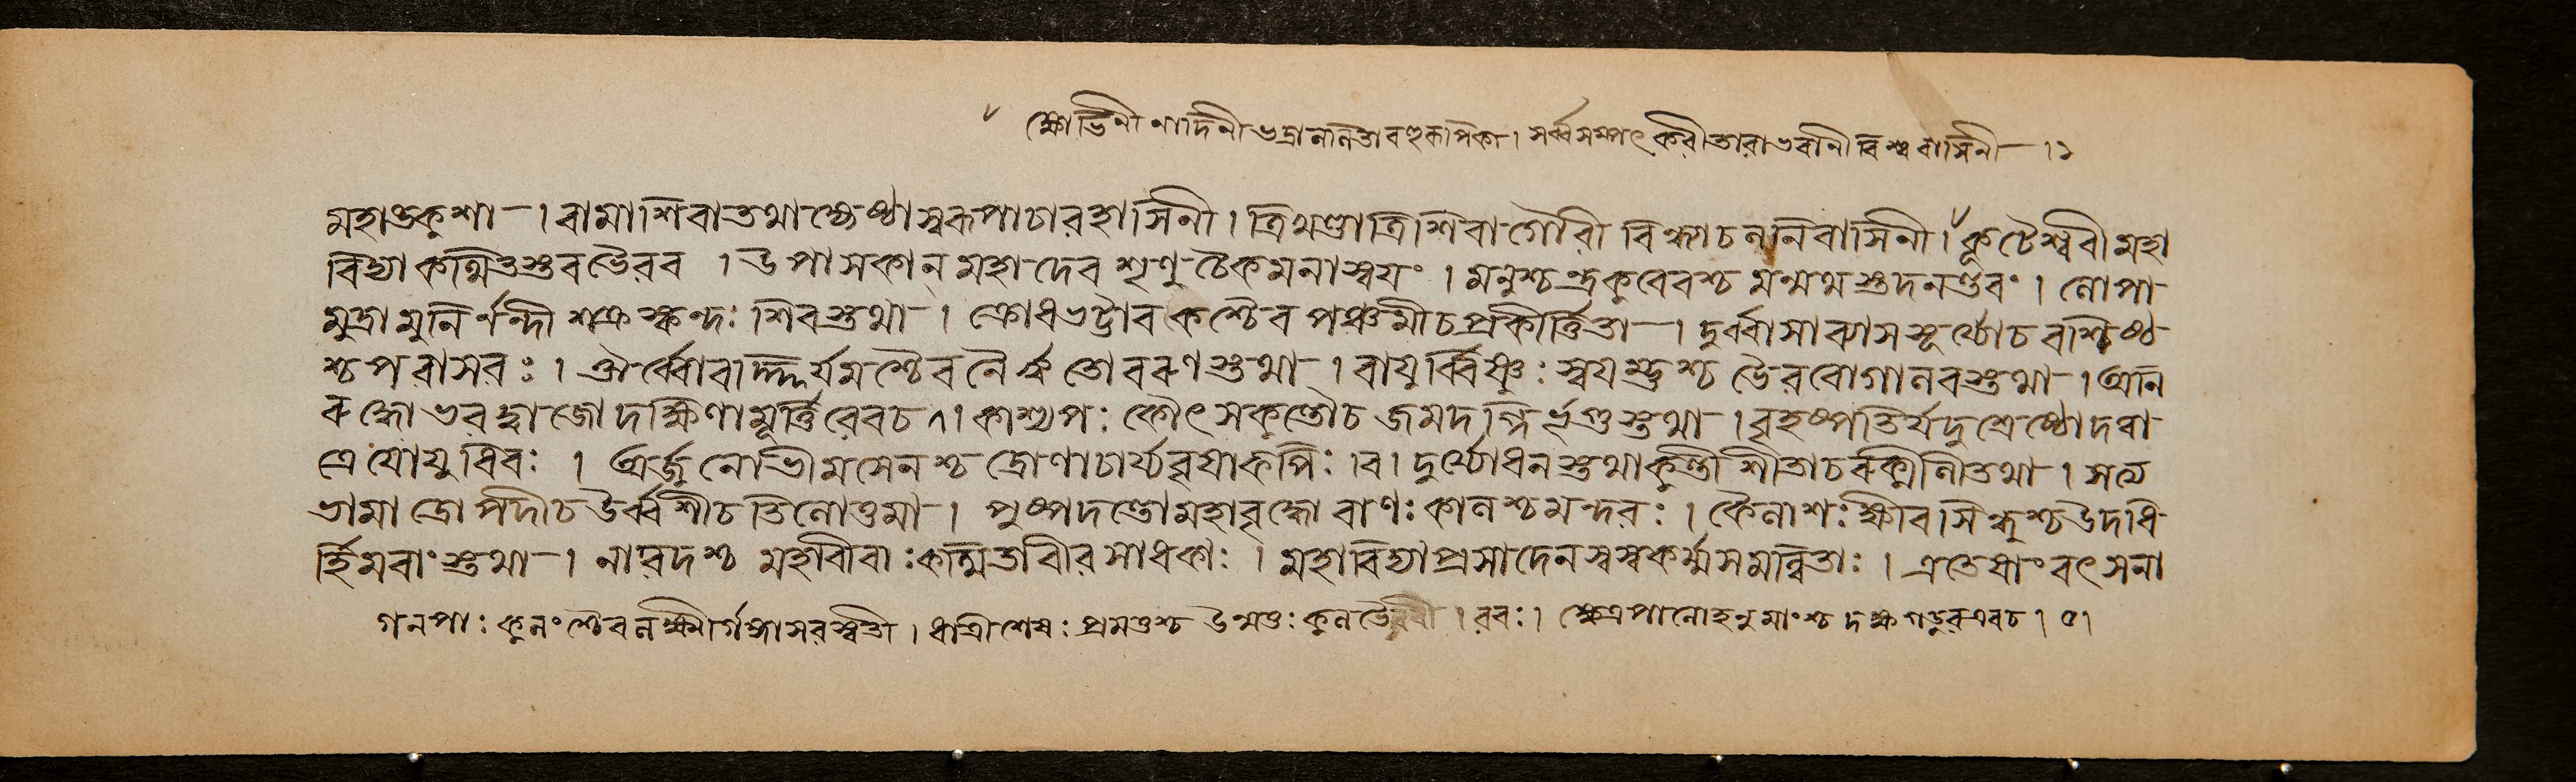 ক্ষোভিনী নাদিনী ভদ্রা ননিতা বহুকাপিকা। সর্ব্বসম্পৎকরী তারা ভবানী বিশ্ববাসিনী ।১
মহাঙ্কুশা । বামা শিবা তথা জ্যেষ্ঠা স্বরূপা চারহাসিনী । ত্রিখণ্ডা ত্রিশিবা গৌরী বিন্ধ্যাচননিবাসিনী । কূটৈশ্বরী মহা
বিদ্যা কল্মিতশুব ভৈরব । উপাসকান্ মহাদেব শৃণু চৈকমনা স্বয়ং । মনুশ্চন্দ্র কুবেরশ্চ মন্মথস্তদনন্তরং । নোপা
মুদ্রা মুনির্নন্দী শক্র স্কন্দঃ শিবস্তথা । ক্রোধভট্টারকশ্চৈব পঞ্চমী চ প্রকীর্ত্তিতা । দুর্ব্বাসা ব্যাসসূর্য্যো চ বশিষ্ঠ
শ্চ পরাসরঃ । ঔর্ব্বো বাহ্নর্যমশ্চৈব নৈর্ঋতো বরুণস্তথা । বায়ুর্ব্বিষ্ণুঃ স্বয়ম্ভুশ্চ ভৈরবো গানবস্তথা । অনি
রুদ্ধো ভরদ্বাজো দক্ষিণামূর্ত্তিরেবচ ৭। কাশ্যপঃ কৌৎসকুন্তৌ চ জমদগ্নির্ভৃগুস্তথা । বৃহষ্পতির্যদুশ্রেষ্ঠো দত্তা
ত্রেয়ো যুধিবিঃ । অর্জুনো ভীমসেনশ্চ দ্রোণাচার্য্য বৃষাকপিঃ ।ব। দুর্য্যোধনস্তথা কুন্তী শীতা চ রুক্মিনী তথা । সত্য
ভামা দ্রোপদী চ উর্ব্বশী চ তিনোত্তমা । পুষ্পদন্তো মহাবৃদ্ধো বাণঃ কানশ্চ মন্দরঃ । কৈনাশঃ ক্ষীরসিন্ধুশ্চ উদধি
র্হিমবাংস্তথা । নারদশ্চ মহাবীরাঃ কল্মিতা বীরসাধকাঃ । মহাবিদ্যাপ্রসাদেন স্বস্বকর্ম্মসমন্বিতাঃ । এতেষাং বৎস না
গনপাঃ কুনংশ্চৈব নক্ষ্মীর্গঙ্গা সরস্বতী । ধাত্রী শেষঃ প্রমত্তশ্চ উন্মত্তঃ কুন ভৈরবী । রবঃ । ক্ষেত্রপানো হনুমাংশ্চ দক্ষ গড়ুর এবচ । ৫।